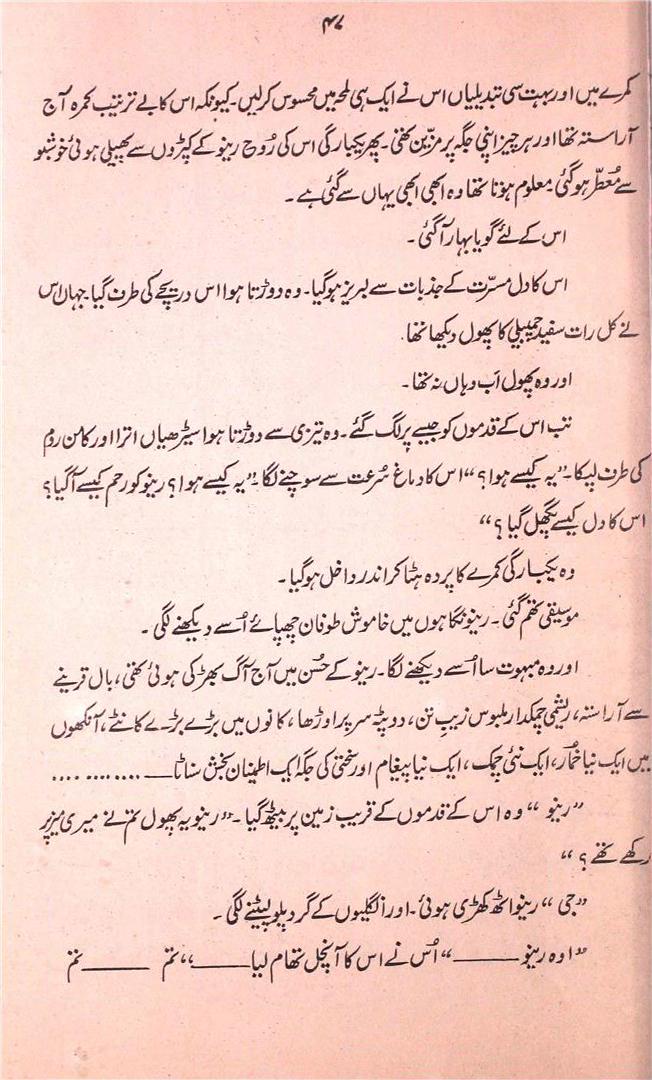 ۴۷
کمرے میں اور بہت سی تبدیلیاں اس نے ایک ہی لمحہ میں محسوس کرلیں۔ کیونکہ اس کا بے ترتیب کمرہ آج
آراستہ تھا اور ہر چیز اپنی جگہ پر مزّین تھی۔ پھر یکبارگی اس کی رُوح رینو کے کپڑوں سے پھیلی ہوئی خوشبو
سے مُعطّر ہو گئی۔ معلوم ہوتا تھا وہ ابھی ابھی یہاں سے گئی ہے۔
اس کے لئے گویا بہار آگئی۔
اس کا دل مسرّت کے جذبات سے لبریز ہوگیا۔ وہ دوڑتا ہوا اس دریچے کی طرف گیا۔ جہاں اس
نے کل رات سفید چمبیلی کا پھول دیکھا تھا۔
اور وہ پھول اَب وہاں نہ تھا۔
تب اس کے قدموں کو جیسے پر لگ گئے۔ وہ تیزی سے دوڑتا ہوا سیڑھیاں اترا اور کامن روم
کی طرف لپکا۔ ”یہ کیسے ہوا؟“ اس کا دماغ سُرعت سے سوچنے لگا۔ ”یہ کیسے ہوا؟ رینو کو رحم کیسے آگیا؟
اس کا دل کیسے پگھل گیا؟“
وہ یکبارگی کمرے کا پردہ ہٹا کر اندر داخل ہوگیا۔
موسیقی تھم گئی۔ رینو نگاہوں میں خاموش طوفان چھپائے اُسے دیکھنے لگی۔
اور وہ مبہوت سا اُسے دیکھنے لگا۔ رینو کے حُسن میں آج آگ بھڑکی ہوئی تھی، بال قرینے
سے آراستہ، ریشمی چمکدار ملبوس زیبِ تن، دوپٹہ سر پر اوڑھا، کانوں میں بڑے بڑے کانٹے، آنکھوں
میں ایک نیا خمُار، ایک نئی چمک، ایک نیا پیغام اور سختی کی جگہ ایک اطمنان بخش سناٹا ــــ ............
”رینو“ وہ اس کے قدموں کے قریب زمین پر بیٹھ گیا۔ ”رینو یہ پھول تم نے میری میز پر
رکھے تھے؟“
”جی“ رینو اٹھ کھڑی ہوئی۔ اور انگلیوں کے گرد پلو لپٹنے لگی۔
”اوہ رینو ـــــــــ“ اُس نے اس کا آنچل تھام لیا ـــــــــ ”تم ـــــــــ تم